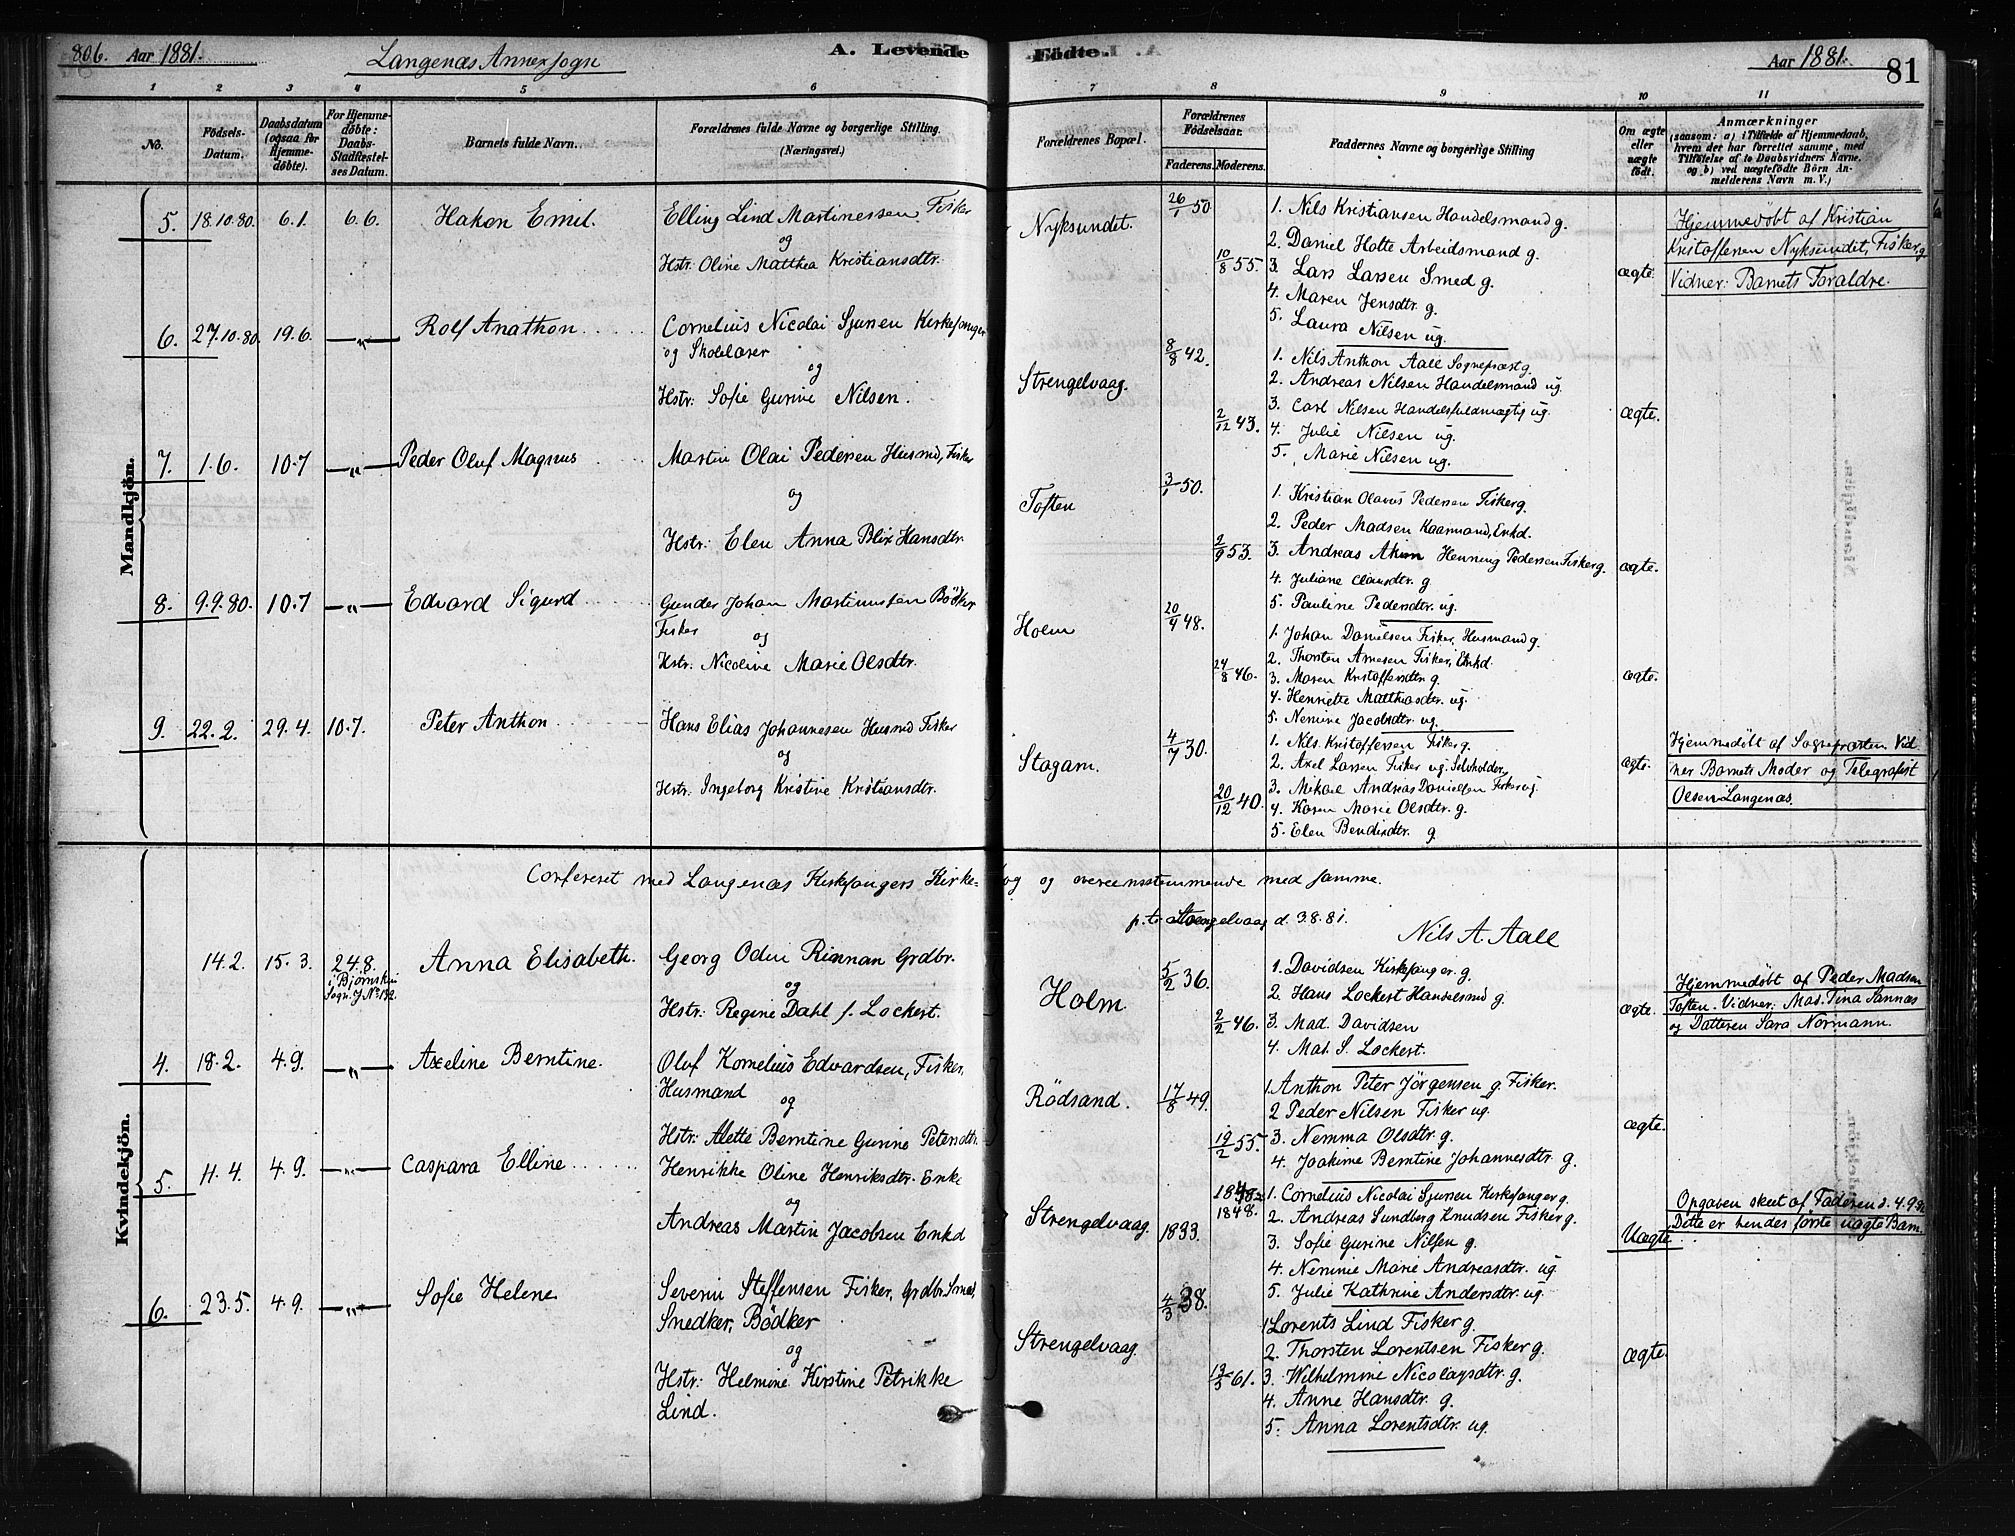 806. Aar 1881. Langenæs Annexsogn A. Levende Födte. Aar 1881. 81
1 2 3 4 5 6 7 8 9 10 11
No. Födsels-Datum. Daabsdatum (ogsaa for Hjemmedöbte). For Hjemmedöbte: Daabs-Stadfæstelses Datum. Barnets fulde Navn. Forældrenes fulde Navne og borgerlige Stilling. (Næringsvei.) Forældrenes Bopæl. Forældrenes Födselsaar. Faderens. Moderens. Faddernes Navne og borgerlige Stilling Om ægte eller uægte födt. Anmærkninger (saasom: a) i Tilfælde af Hjemmedaab, hvem der har forrettet samme, med Tilföielse af to Daabsvidners Navne. og b) ved uægtefödte Börn Anmelderens Navn m. V.)
Mandkjön.
5. 18.10.80. 6.1. 6.6. Hakon Emil. Elling Lind Martinessen Fisker
og
Hstr. Oline Matthea Kristiansdtr.
Nyksundet. 26/1 50 10/8 55.
1. Nils Kristiansen Handelsmand g.
2. Daniel Holte Arbeidsmand g.
3. Lars Larsen Smed g.
4. Maren Jensdtr. g.
5. Laura Nilsen ug.
ægte.
Hjemmedøbt af Kristian
Kristoffersen Nyksundet, Fisker g.
Vidner: Barnets Foraldre.
6. 27.10.80. 19.6. —"— Rolf Anathon Cornelius Nicolai Sjursen Kirkesanger
og Skolelærer
og
Hstr: Sofie Gurine Nilsen.
Strengelvaag. 8/8 42. 2/12 43.
1. Nils Anthon Aall Sognepræst g.
2. Andreas Nilsen Handelsmand ug.
3. Carl Nilsen Handelsfuldmægtig ug.
4. Julie Nilsen ug.
5. Marie Nilsen ug.
ægte.
7. 1.6. 10.7 —"— Peder Oluf Magnus Martin Olai Pedersen Husmd, Fisker
og
Hstr: Elen Anna Blix Hansdtr.
Toften 3/1 50. 2/9 53.
1. Kristian Olavus Pedersen Fisker g.
2. Peder Madsen Kaarmand, Enkd.
3. Andreas Henning Pedersen Fisker g.
4. Juliane Clausdtr. g
5. Pauline Pedersdtr. ug.
ægte.
8. 9.9.80. 10.7 —"— Edvard Sigurd Gunder Johan Martinussen Bödker
Fisker
og
Hstr: Nicoline Marie Olsdtr.
Holm 20/4 48. 24/8 46.
1. Johan Danielsen Fisker, Husmand g.
2. Thorsten Arnesen Fisker, Enkd.
3. Maren Kristoffersdtr. g.
4. Henriette Matthiasdtr. ug.
5. Nemine Jacobsdtr. ug.
ægte.
9. 22.2. 29.4. 10.7. Peter Anthon Hans Elias Johannesen Husmd Fisker
og
Hstr. Ingeborg Kristine Kristiansdtr.
Stagarn. 4/7 30. 20/12 40.
1. Nils Kristoffersen Fisker g.
2. Axel Larsen Fisker ug. Selvholder
3. Mikael Andreas Danielsen Fisker ug.
4. Karen Marie Olsdtr. g.
5. Elen Bendixdtr. g
ægte.
Hjemmedöbt af Sognepræsten Vid-
ner Barnets Moder og Telegrafist
Olsen Langenæs.
Confereret med Langenæs Kirkesangers Kirkebog og overensstemmende med samme.
p.t. Strengelvaag d. 3.8.81.
Nils A. Aall
Kvindekjön.
14.2. 15.3. 24.8. i Bjørnskin Sogn. J No. 132. Anna Elisabeth. Georg Odin Rinnan Grdbr.
og
Hstr: Regine Dahl f. Lockert.
Holm. 5/2 36. 2/2 46.
1. Davidsen Kirkesanger g.
2. Hans Lockert Handelsmd g.
3. Mad. Davidsen
4. Mad. S. Lockert.
ægte.
Hjemmedøbt af Peder Madsen
Toften. Vidner: Mad. Tina Sannæs
og Datteren Sara Normann.
4. 18.2. 4.9. —"— Axeline Berntine. Oluf Kornelius Edvardsen, Fisker.
Husmand
og
Hstr: Alette Berntine Gurine Petersdtr.
Rödsand. 17/8 49. 19/2 55.
1. Anthon Peter Jörgensen g. Fisker.
2 Peder Nilsen Fisker ug.
3. Nemma Olsdtr. g.
4. Joakime Berntine Johannesdtr. g.
ægte.
5. 11.4. 4.9. —"— Caspara Elline Henrikke Oline Henriksdtr. Enke
og
Andreas Martin Jacobsen Enkd
Strengelvaag 1833. 1848.
1. Cornelius Nicolai Sjursen Kirkesanger g.
2. Andreas Sundberg Knudsen Fisker g.
3. Sofie Gurine Nilsen g.
4. Nemmie Marie Andreasdtr. ug
5. Julie Kathrine Andersdtr. ug
Uægte
Opgaven skeet af Faderen d. 4.9.81
Dette er hendes første uægte Barn.
6. 23.5. 4.9. —"— Sofie Helene Severin Steffensen Fisker, Grdbr. Smed,
Snedker, Bödker
og
Hstr: Helmine Kirstine Petrikke
Lind.
Strengelvaag. 4/3 38. 13/5 61.
1 Lorents Lind Fisker g.
2. Thorsten Lorentsen Fisker g.
3. Wilhelmine Nicolaysdtr. g.
4. Anne Hansdtr. g.
5. Anna Lorentsdtr. ug.
ægte